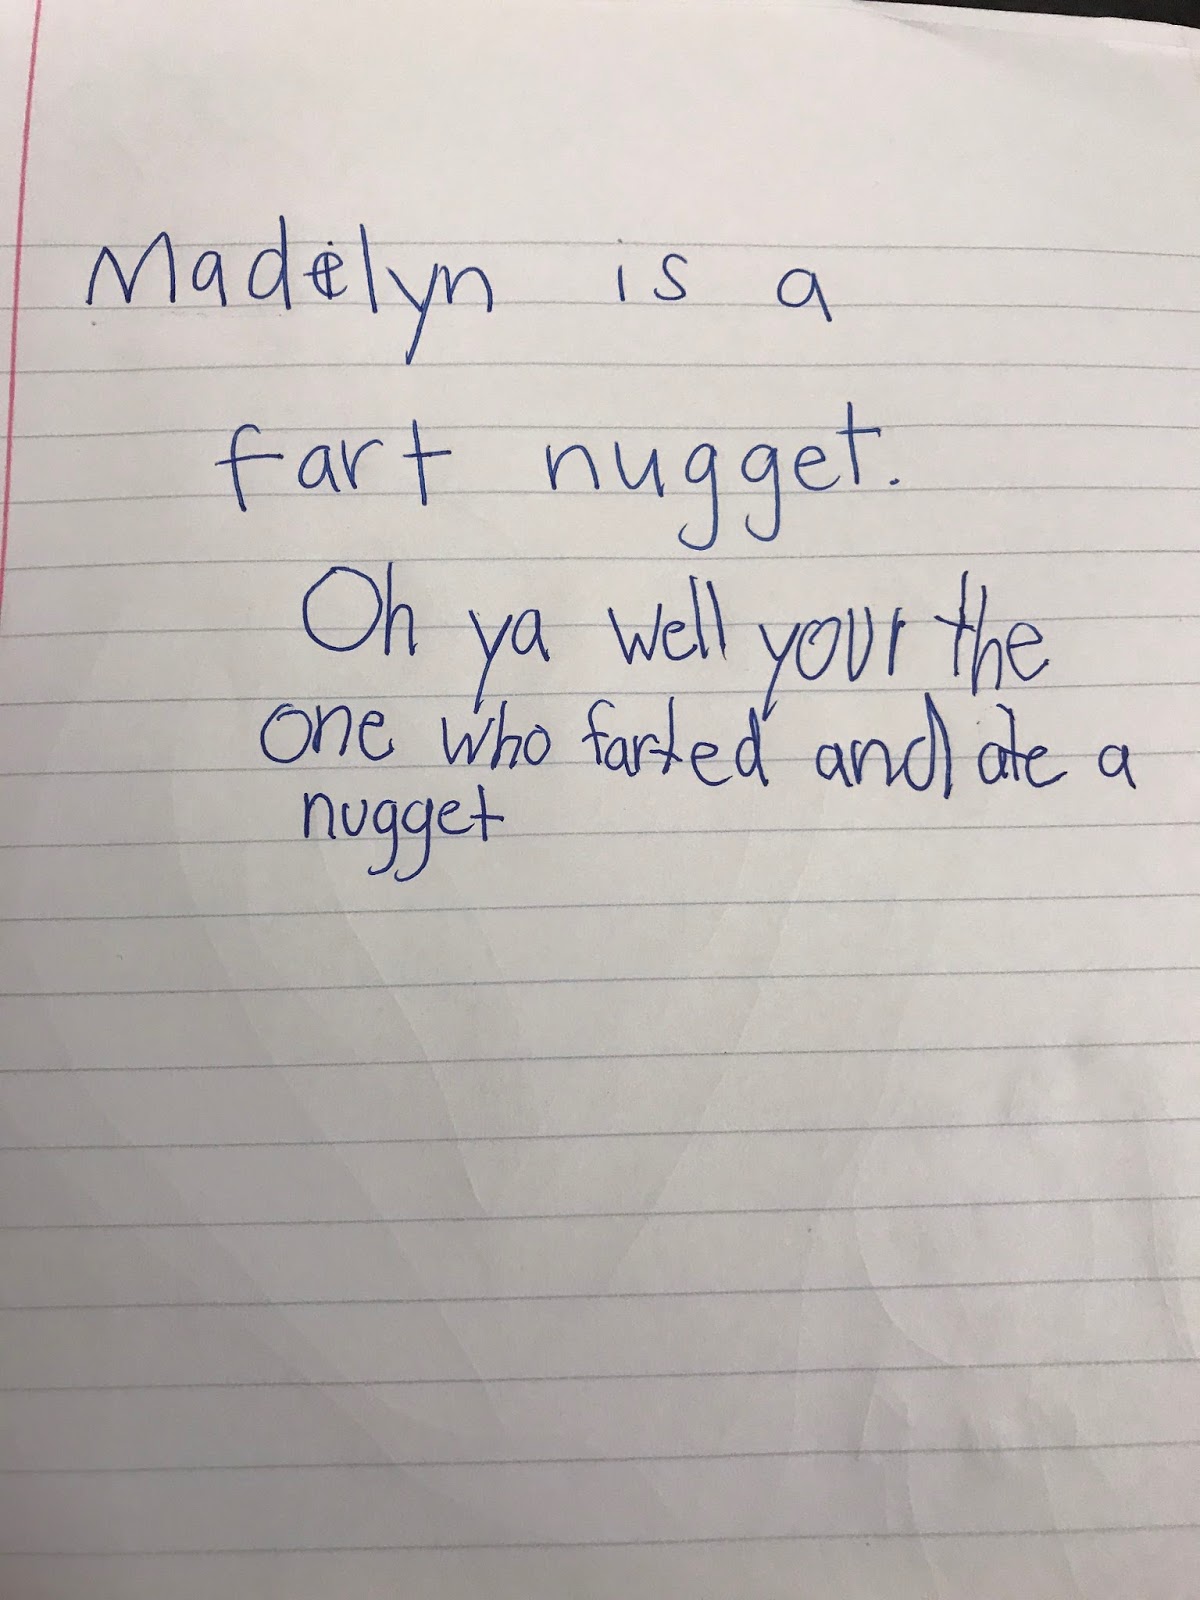 Madelyn is a
fart nugget.
Oh ya well your the
one who farted and ate a
nugget